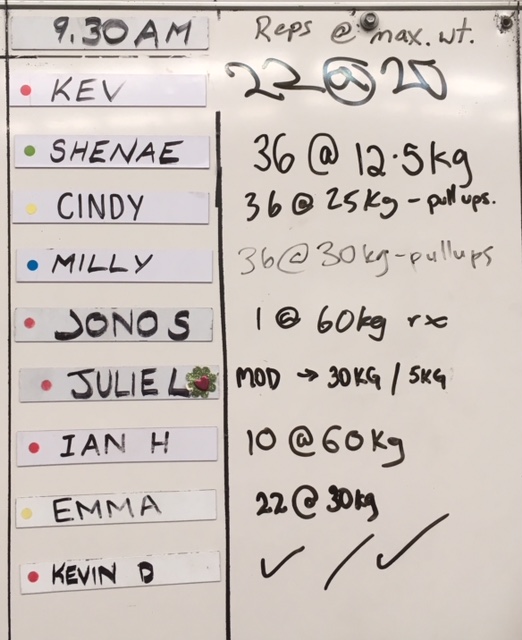 9.30AM Reps @ max.wt.
KEV 22 @ 20
SHENAE 36 @ 12.5kg
CINDY 36 @ 25Kg - pull ups.
MILLY 36 @ 30kg-pullups
JONO S 1 @ 60kg rx
JULIE L MOD → 30KG / 5KG
IAN H 10 @ 60kg
EMMA 22 @ 30kg
KEVIN D ✓ / ✓